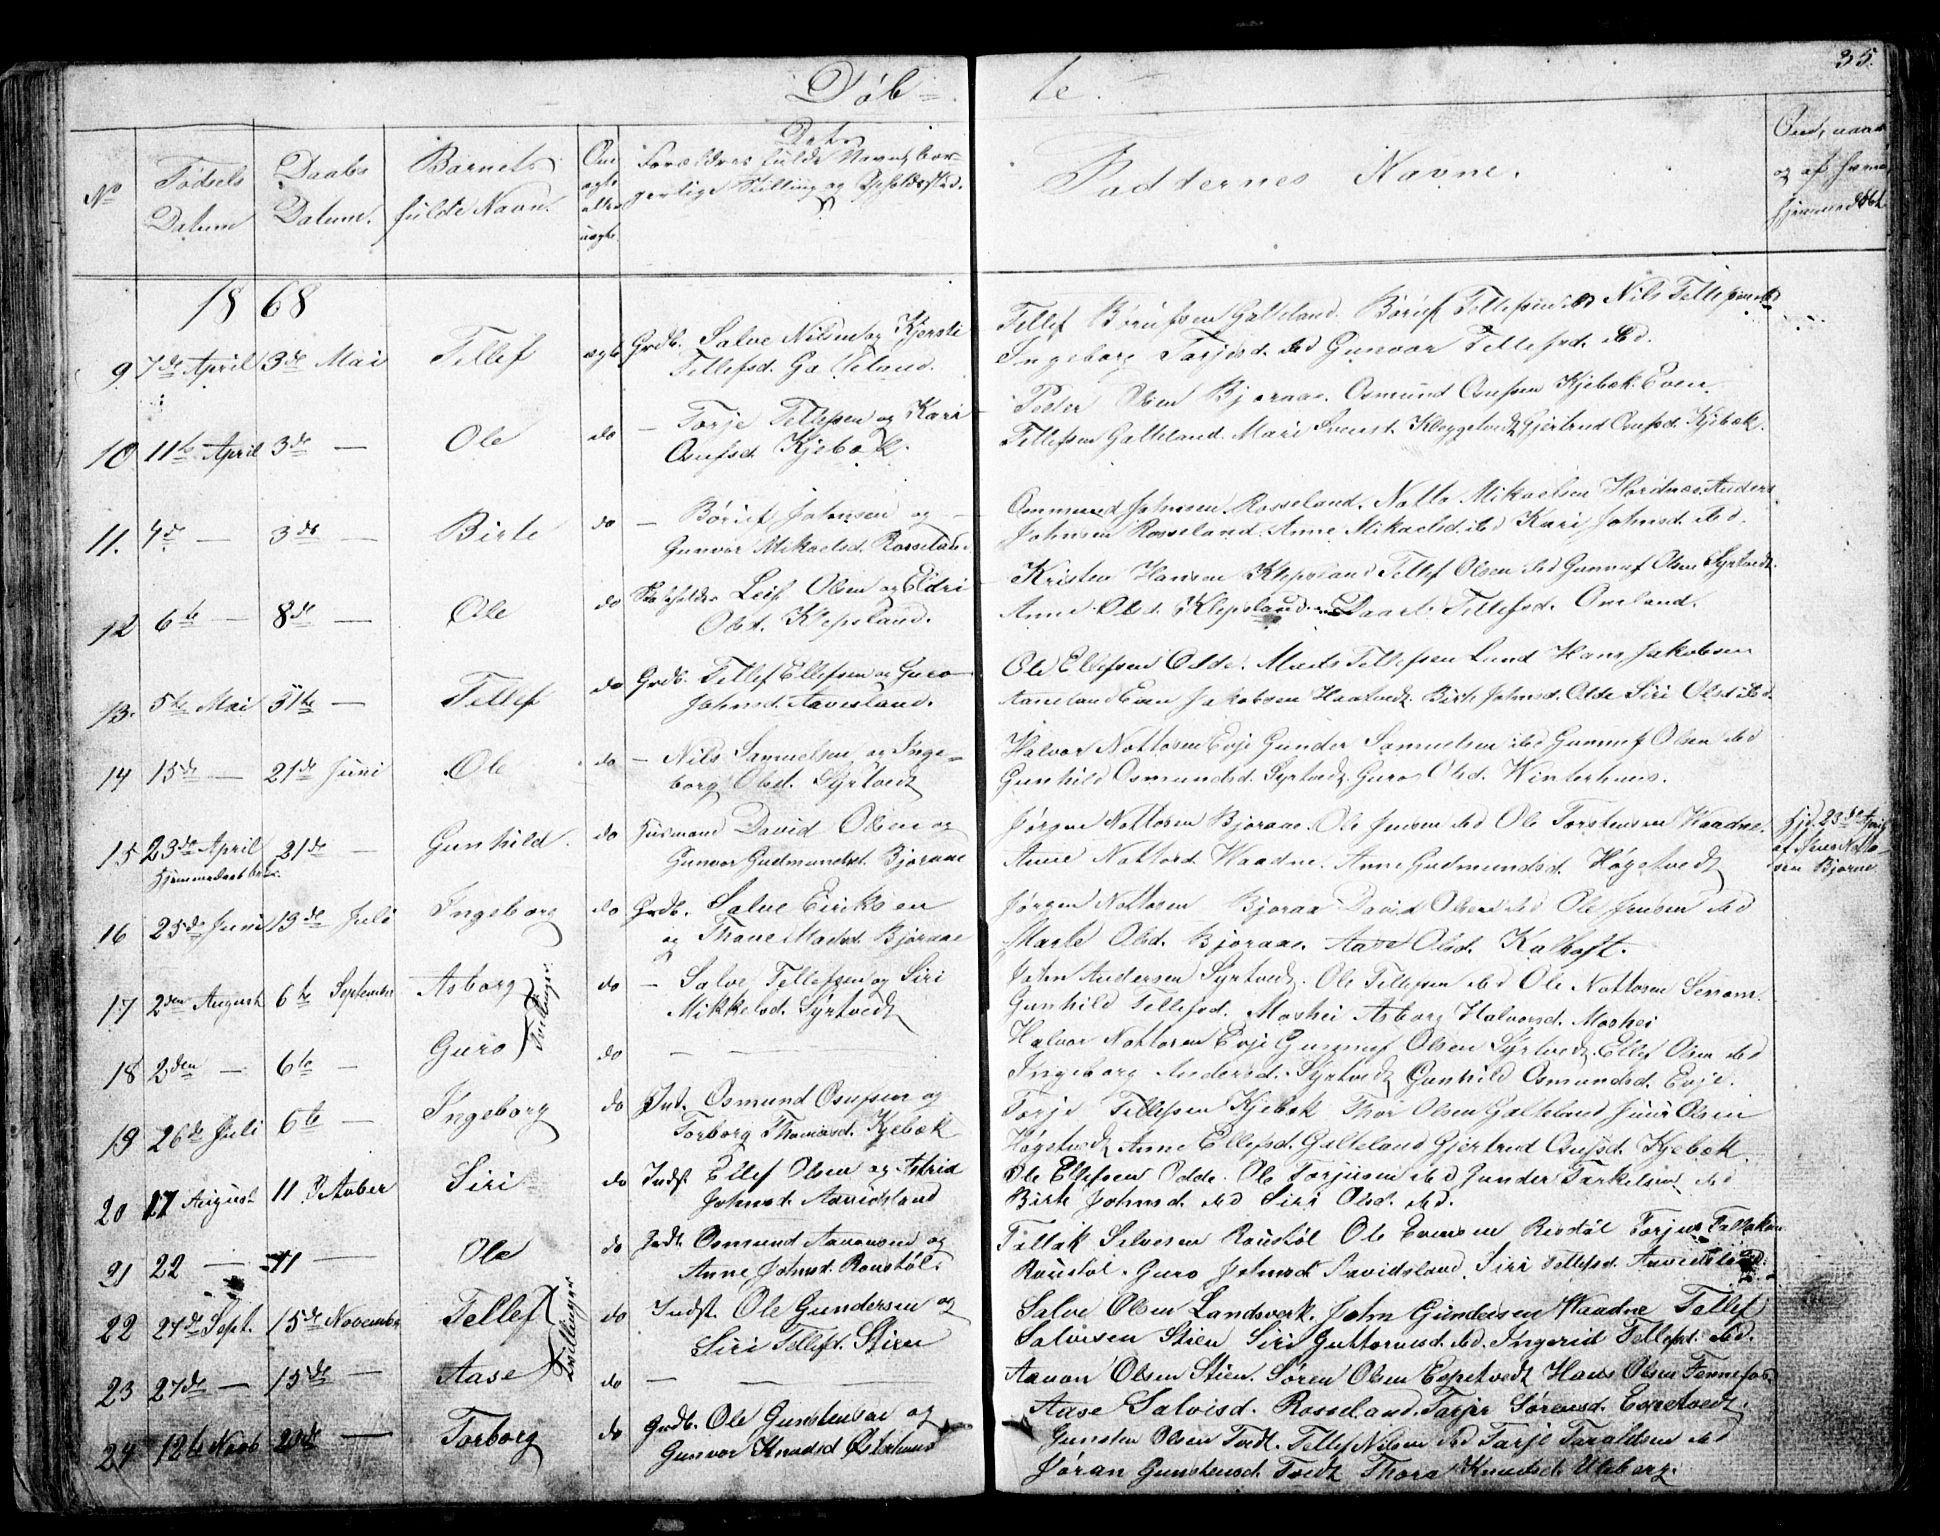 35.
Døb= te.
No
Fødsels Datum
Daabs Datum.
Barnets fulde Navn.
Om ægte eller uægte
Dets Forældres fulde Navn, borgerlige Stilling og Opholdssted.
Faddernes Navne.
Om, naar og af hvem hjemmedøbt
1868
9 7de April 3de Mai Tellef ægte Grdb. Salve Nilsen og Kjersti
Tellefsd. Galteland.
Tellef Børufsen Galteland. Børuf Tellefsen ibd Nils Tellefsen ibd
Ingeborg Torjusd. ibd Gunvor Tellefsd. ibd.
10 11te April 3de — Ole do — Torje Tellefsen og Kari
Osufsd Kjebæk.
Peder Olsen Bjoraae. Osmund Osufsen Kjebæk. Even
Tellefsen Galteland. Mari Svensd. Kleggetvedt Gjertrud Osufsd. Kjebæk.
11. 4de — 3de — Birte do — Børuf Johnsen og
Gunvor Mikaelsd. Rosseland.
Ommund Johnsen Rosseland. Notto Mikaelsen Hordnæs. Anders
Johnsen Rosseland. Anne Mikaelsd. ibd Kari Johnsd. ibd.
12 6te — 8de — Ole do Leif Olsen og Eldri
Olsd. Klepsland.
Kristen Hansen Klepsland Tellef Olsen ibd Gunnuf Olsen Syrtvedt.
Anne Olsd. Klepsland. Tellefsd. Omland.
13. 5te Mai 31te — Tellef do Grdb. Tellef Ellefsen og Guro
Johnsd. Aavesland.
Ole Ellefsen Odde. Mads Tellefsen Lund Hans Jakobsen
Aaneland Even Jakobsen Haatvedt. Birte Johnsd. Odde Siri Olsd ibd.
14 15de — 21de Juni Ole do — Nils Samuelsen og Inge=
borg Olsd. Syrtvedt
Halvor Nottosen Evje Gunder Samuelsen ibd Gunnuf Olsen ibd
Gunhild Osmundsd. Syrtvedt. Guro Olsd. Winterhuus.
15 23de April 21de — Gunhild. do Huusmand David Olsen og
Hjemmedøbt
Gunvor Gudmundsd. Bjoraae
Jørgen Nottosen Bjoraae. Ole Jensen ibd Ole Torstensen Haadne.
Anne Nottosd. Haadne. Anne Gudmundsd. Høgetvedt
Hjd. 23de April
af Jens Notto
sen Bjoraae
16 25de Juni 19de Juli Ingeborg do Grdb. Salve Eiriksen
og Thone Madsd. Bjoraae
Jørgen Nottosen Bjoraae David Olsen ibd Ole Jensen ibd
Marte Olsd. Bjoraae. Aase Olsd. Kalhoft.
17 2den August 6te September Asborg Tvillinger. do — Salve Tellefsen og Siri
Mikkelsd. Syrtvedt
John Andersen Syrtvedt. Ole Tellefsen ibd Ole Nottosen Senom.
Gunhild Tellefsd. Moshei Asborg Halvorsd. Moshei
18 2den — 6te — Guro do — — —
Halvor Nottosen Evje Gunnuf Olsen Syrtvedt. Ellef Olsen ibd
Ingeborg Andersd. Syrtvedt Gunhild Osmundsd. Evje.
19 26de Juli 6te — Ingeborg do Ind. Osmund Osufsen og
Torborg Thomasd. Kjebæk
Torje Tellefsen Kjebæk Thor Olsen Galteland Olsen
Høgetvedt Anne Ellefsd. Galteland Gjertrud Osufsd. Kjebæk.
20 17 August 11 Oktober Siri do Indst Ellef Olsen og Astrid
Johnsd. Aavidsland
Ole Ellefsen Odde. Ole Torjusen ibd Gunder Tarkelsen ibd
Birte Johnsd ibd Siri Olsd. ibd.
21 22 — 11 — Ole do Indt. Osmund Aavonsen og
Anne Johnsd. Roustøl.
Tallak Salvesen Roustøl Ole Evensen Risdøl Torjus Tallaksen
Roustøl. Guro Johnsd Aavidsland. Siri Tellefsd. Aavidsland.
22 27de Sept. 15de November Tellef Tvillinger do Indst. Ole Gundersen og
Siri Tellefsd. Stien
Salve Olsen Landsverk. John Gundersen Haadne Tellef
Salvesen Stien Siri Guttormsd. ibd. Ingerid Tellefsd. ibd.
23 27de — 15de — Aase do — — —
Aavon Olsen Stien. Søren Olsen Espetvedt Hans Olsen Fennefos.
Aase Salvisd. Rosseland. Tarjer Sørensd. Espetvedt.
24 12te Novb 20de — Torborg do Grdb. Ole Gunstensen og
Gunvor Knudsd
Gunsten Olsen Tvedt. Tellef Nilsen ibd Tarje Taraldsen ibd
Jøran Gunstensd. Tvedt Thora Knudsd. Uleberg.